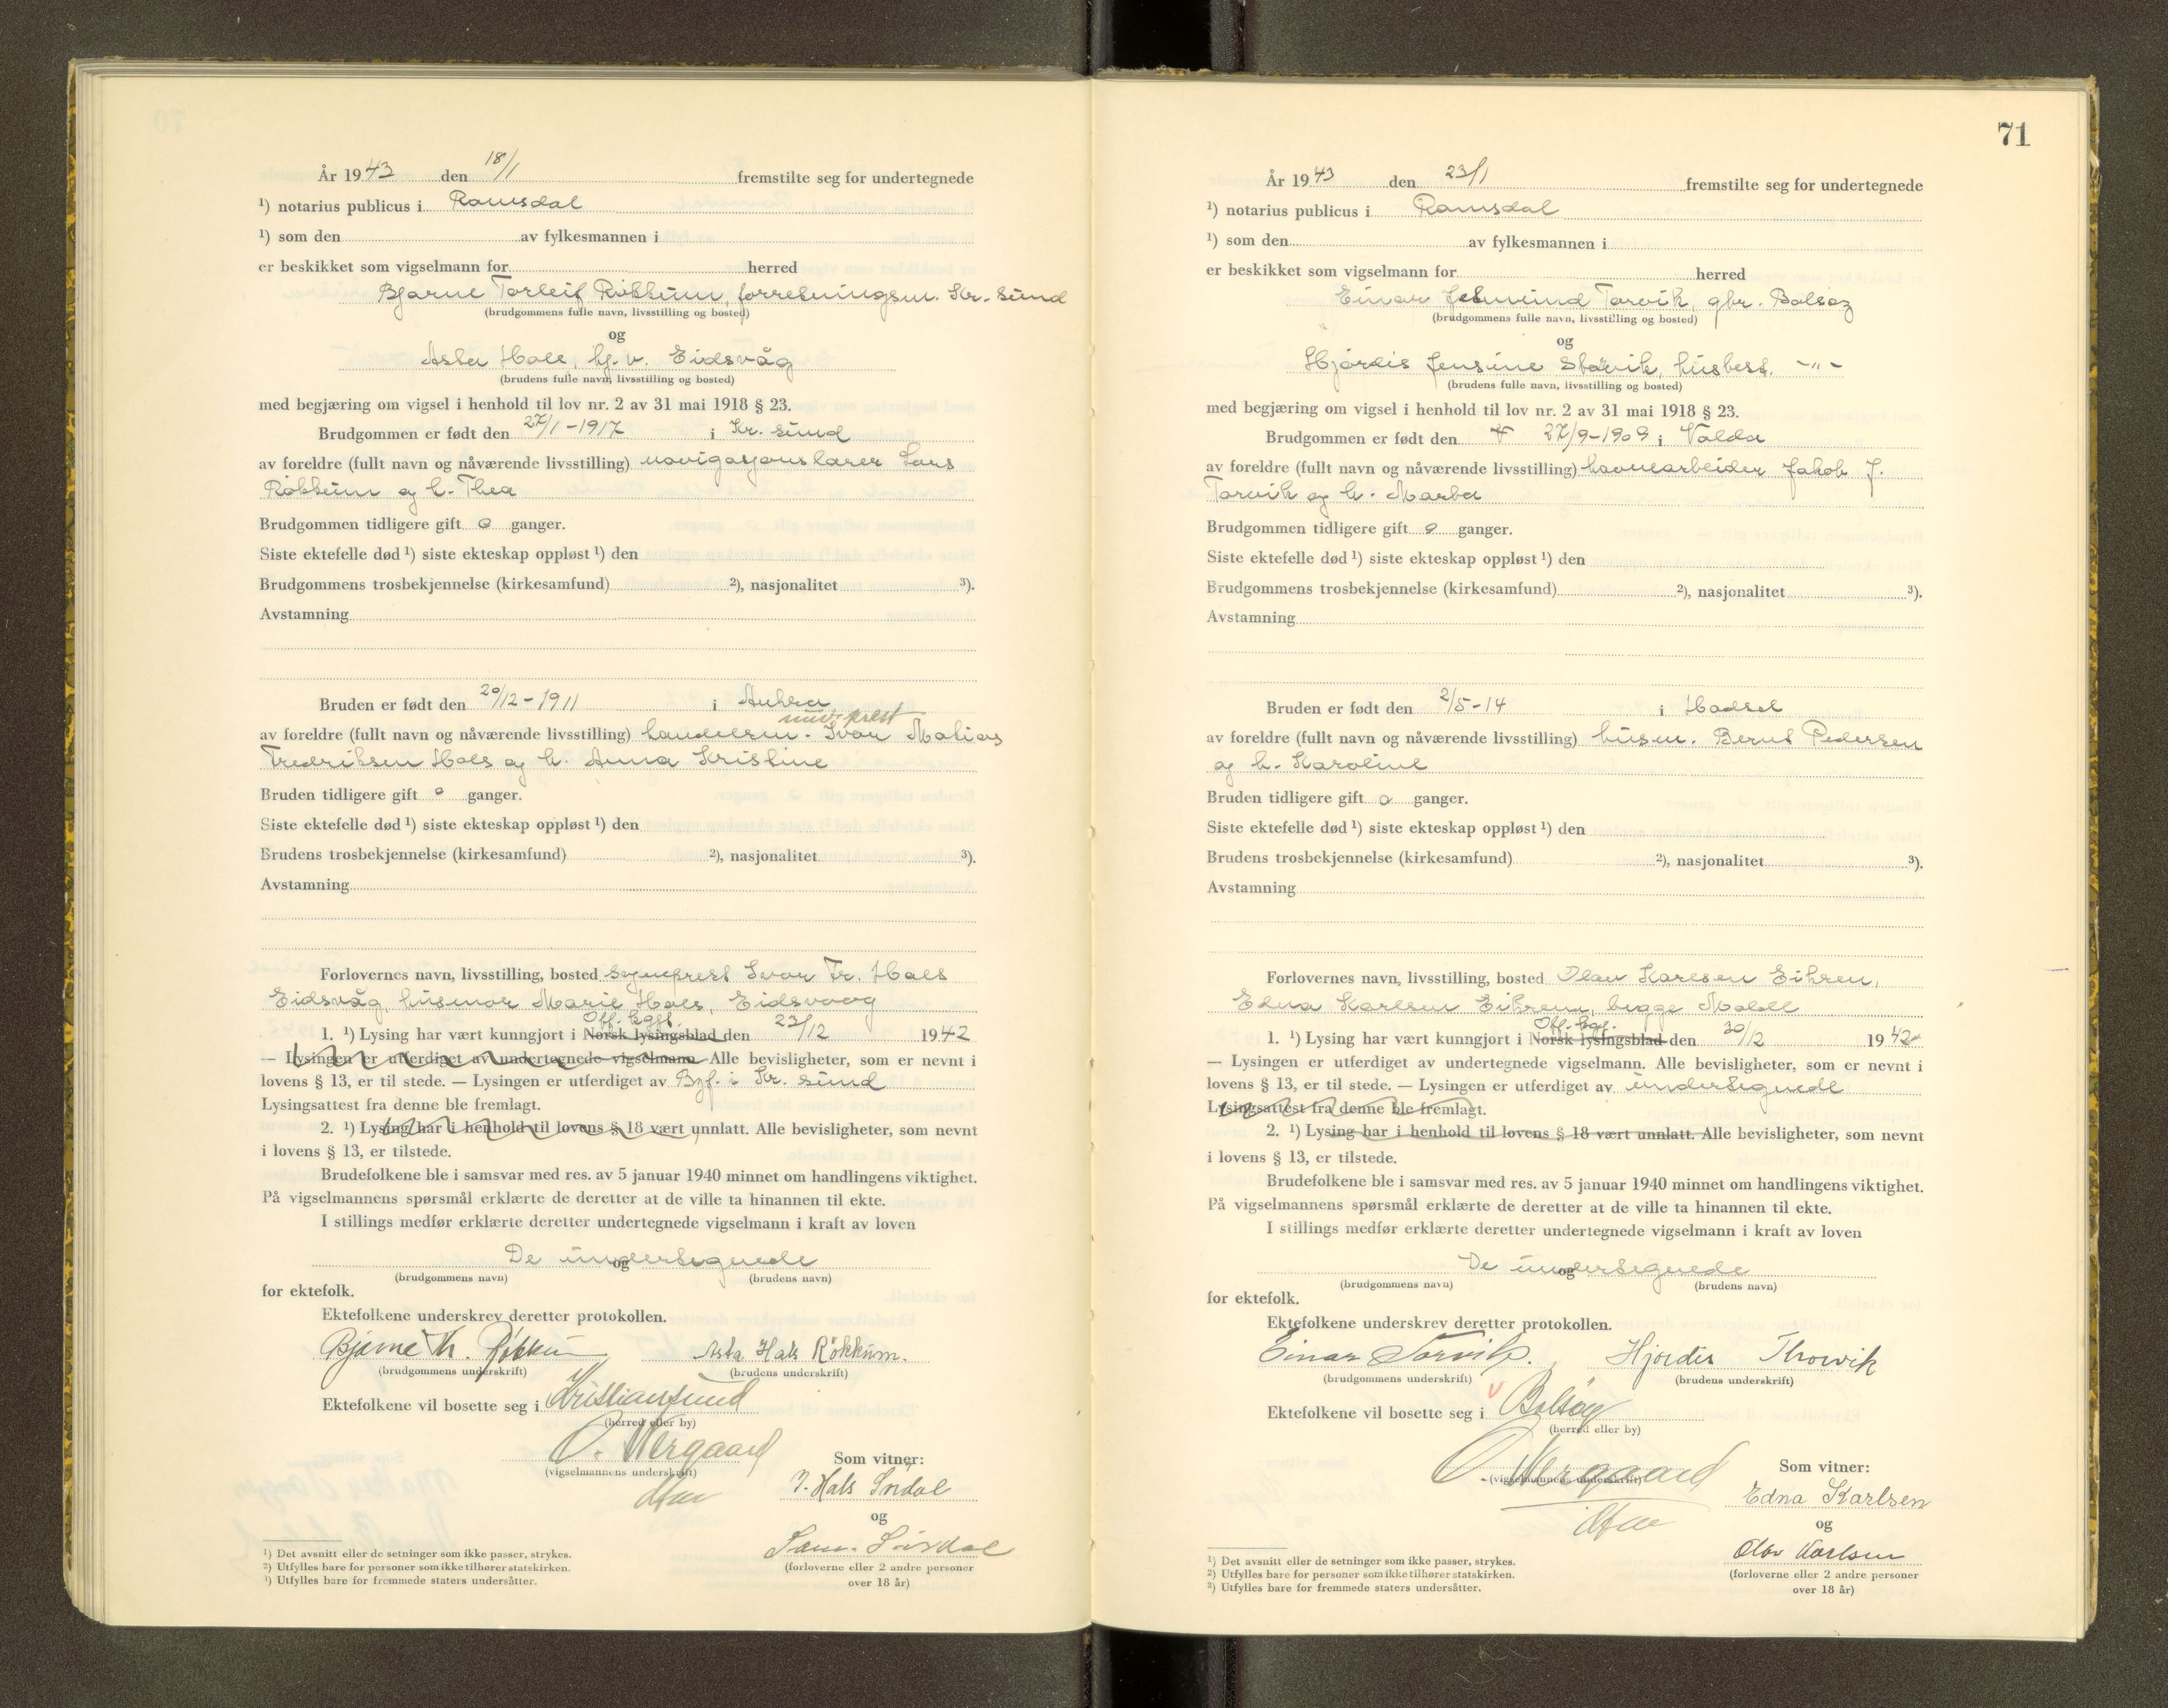 År 1943 den 18/1 fremstilte seg for undertegnede
¹) notarius publicus i Romsdal
¹) som den av fylkesmannen i
er beskikket som vigselmann for herred
Bjarne Torleif Røkkum, forretningsm. Kr.-sund
(brudgommens fulle navn, livsstilling og bosted)
og
Asta Hals, hj.v. Eidsvåg
(brudens fulle navn, livsstilling og bosted)
med begjæring om vigsel i henhold til lov nr. 2 av 31 mai 1918 § 23.
Brudgommen er født den 27/1-1917 i Kr.sund
av foreldre (fullt navn og nåværende livsstilling) navigasjonslærer Lars
Røkkum og h. Thea
Brudgommen tidligere gift 0 ganger.
Siste ektefelle død ¹) siste ekteskap oppløst ¹) den
Brudgommens trosbekjennelse (kirkesamfund) ²), nasjonalitet ³).
Avstamning
Bruden er født den 20/12-1911 i Aukra
prest
av foreldre (fullt navn og nåværende livsstilling) Ivar Matias
Fredriksen Hals og h. Anna Kristine
Bruden tidligere gift 0 ganger.
Siste ektefelle død ¹) siste ekteskap oppløst ¹) den
Brudens trosbekjennelse (kirkesamfund) ²), nasjonalitet ³).
Avstamning
Forlovernes navn, livsstilling, bosted sogneprest Ivar Fr. Hals
Eidsvåg, husmor Marie Hals, Eidsvaag
Off. kgj.
1. ¹) Lysing har vært kunngjort i Norsk lysingsblad den 23/12 1942
— Lysingen er utferdiget av undertegnede vigselmann Alle bevisligheter, som er nevnt i
lovens § 13, er til stede. — Lysingen er utferdiget av Byf. i Kr. sund
Lysingsattest fra denne ble fremlagt.
2. ¹) Lysing har i henhold til lovens § 18 vært unnlatt. Alle bevisligheter, som nevnt
i lovens § 13, er tilstede.
Brudefolkene ble i samsvar med res. av 5 januar 1940 minnet om handlingens viktighet.
På vigselmannens spørsmål erklærte de deretter at de ville ta hinannen til ekte.
I stillings medfør erklærte deretter undertegnede vigselmann i kraft av loven
De undertegnede
og
(brudgommens navn) (brudens navn)
for ektefolk.
Ektefolkene underskrev deretter protokollen.
Bjarne Th. Røkkum Asta Hals Røkkum.
(brudgommens underskrift) (brudens underskrift)
Ektefolkene vil bosette seg i Kristiansund
(herred eller by)
O. Wergaard
(vigselmannens underskrift) Som vitner:
I. Hals Sirdal
og
Sam. Sirdal
(forloverne eller 2 andre personer
over 18 år)
¹) Det avsnitt eller de setninger som ikke passer, strykes.
²) Utfylles bare for personer som ikke tilhører statskirken.
³) Utfylles bare for fremmede staters undersåtter.
71
År 1943 den 23/1 fremstilte seg for undertegnede
¹) notarius publicus i Romsdal
¹) som den av fylkesmannen i
er beskikket som vigselmann for herred
Einar Torvik, gbr. Bolsøy
(brudgommens fulle navn, livsstilling og bosted)
og
Hjørdis Jensine Størvik, husbest. -"-
(brudens fulle navn, livsstilling og bosted)
med begjæring om vigsel i henhold til lov nr. 2 av 31 mai 1918 § 23.
Brudgommen er født den 27/9-1909 i Volda
av foreldre (fullt navn og nåværende livsstilling) havnearbeider Jakob J.
Torvik og h. Marta
Brudgommen tidligere gift 0 ganger.
Siste ektefelle død ¹) siste ekteskap oppløst ¹) den
Brudgommens trosbekjennelse (kirkesamfund) ²), nasjonalitet ³).
Avstamning
Bruden er født den 2/5-14 i Hadsel
av foreldre (fullt navn og nåværende livsstilling) husm. Bernt Pedersen
og h. Karoline
Bruden tidligere gift 0 ganger.
Siste ektefelle død ¹) siste ekteskap oppløst ¹) den
Brudens trosbekjennelse (kirkesamfund) ²), nasjonalitet ³).
Avstamning
Forlovernes navn, livsstilling, bosted Olav Karlsen Eikrem,
Edna Karlsen Eikrem, begge Molde
Off. kgj.
1. ¹) Lysing har vært kunngjort i Norsk lysingsblad den 30/12 1942
— Lysingen er utferdiget av undertegnede vigselmann. Alle bevisligheter, som er nevnt i
lovens § 13, er til stede. — Lysingen er utferdiget av undertegnede
Lysingsattest fra denne ble fremlagt.
2. ¹) Lysing har i henhold til lovens § 18 vært unnlatt. Alle bevisligheter, som nevnt
i lovens § 13, er tilstede.
Brudefolkene ble i samsvar med res. av 5 januar 1940 minnet om handlingens viktighet.
På vigselmannens spørsmål erklærte de deretter at de ville ta hinannen til ekte.
I stillings medfør erklærte deretter undertegnede vigselmann i kraft av loven
De undertegnede
og
(brudgommens navn) (brudens navn)
for ektefolk.
Ektefolkene underskrev deretter protokollen.
Einar Torvik. Hjørdis Thorvik
(brudgommens underskrift) (brudens underskrift)
Ektefolkene vil bosette seg i Bolsøy
(herred eller by)
O. Wergaard
(vigselmannens underskrift) Som vitner:
Edna Karlsen
og
Olav Karlsen
(forloverne eller 2 andre personer
over 18 år)
¹) Det avsnitt eller de setninger som ikke passer, strykes.
²) Utfylles bare for personer som ikke tilhører statskirken.
³) Utfylles bare for fremmede staters undersåtter.